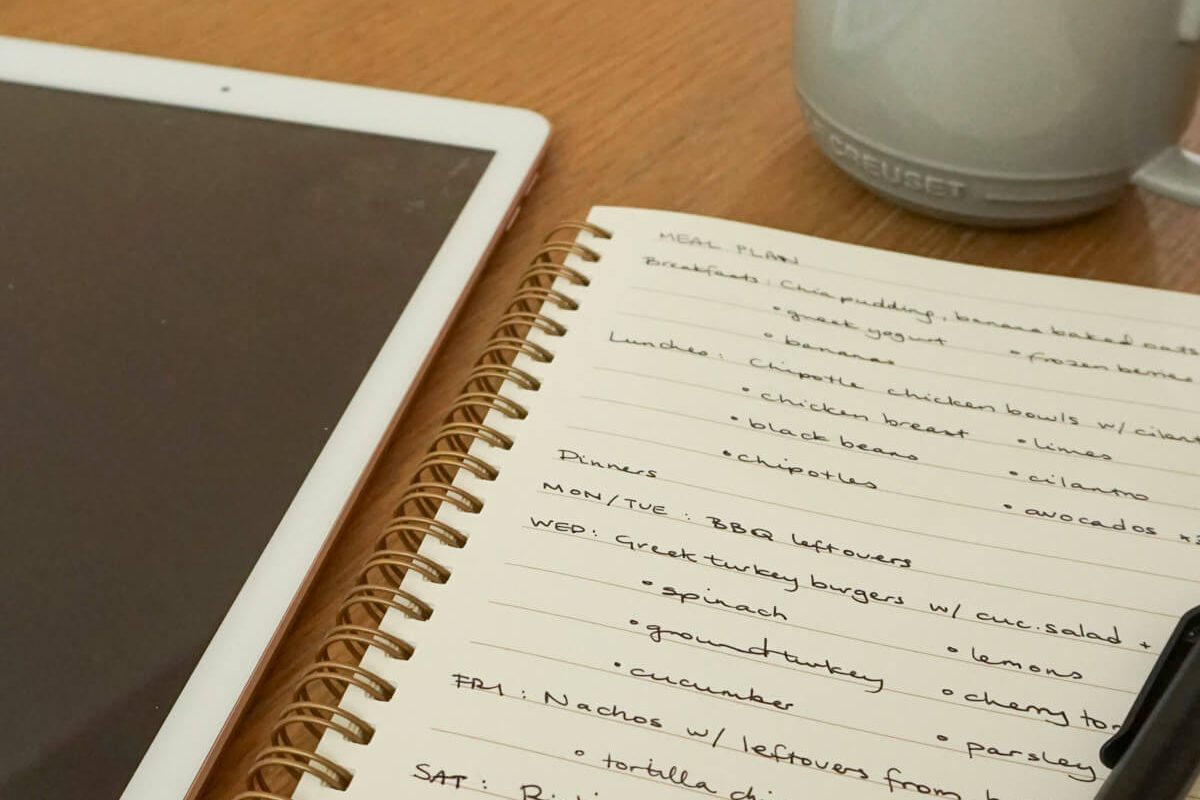 CREUSET
MEAL PLAN
Breakfasts: Chia pudding, banana baked oats
• greek yogurt • frozen berries
• bananas
Lunches: Chipotle chicken bowls w/
• chicken breast • limes
• black beans • cilantro
• chipotles • avocados
Dinners
MON/TUE: BBQ leftovers
WED: Greek turkey burgers w/ cuc. salad +
• spinach • lemons
• ground turkey • cherry
• cucumber • parsley
FRI: Nachos w/ leftovers from
• tortilla
SAT: